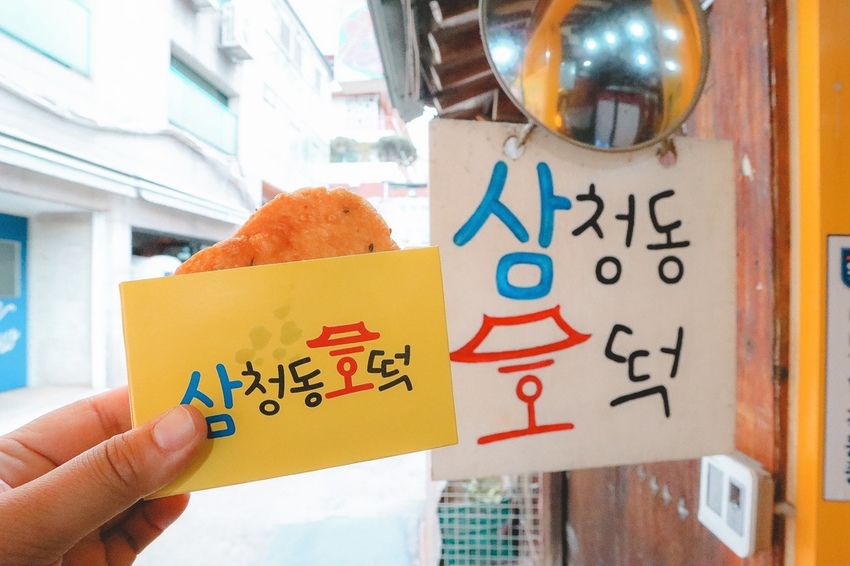 삼청동호떡
삼청동
호떡